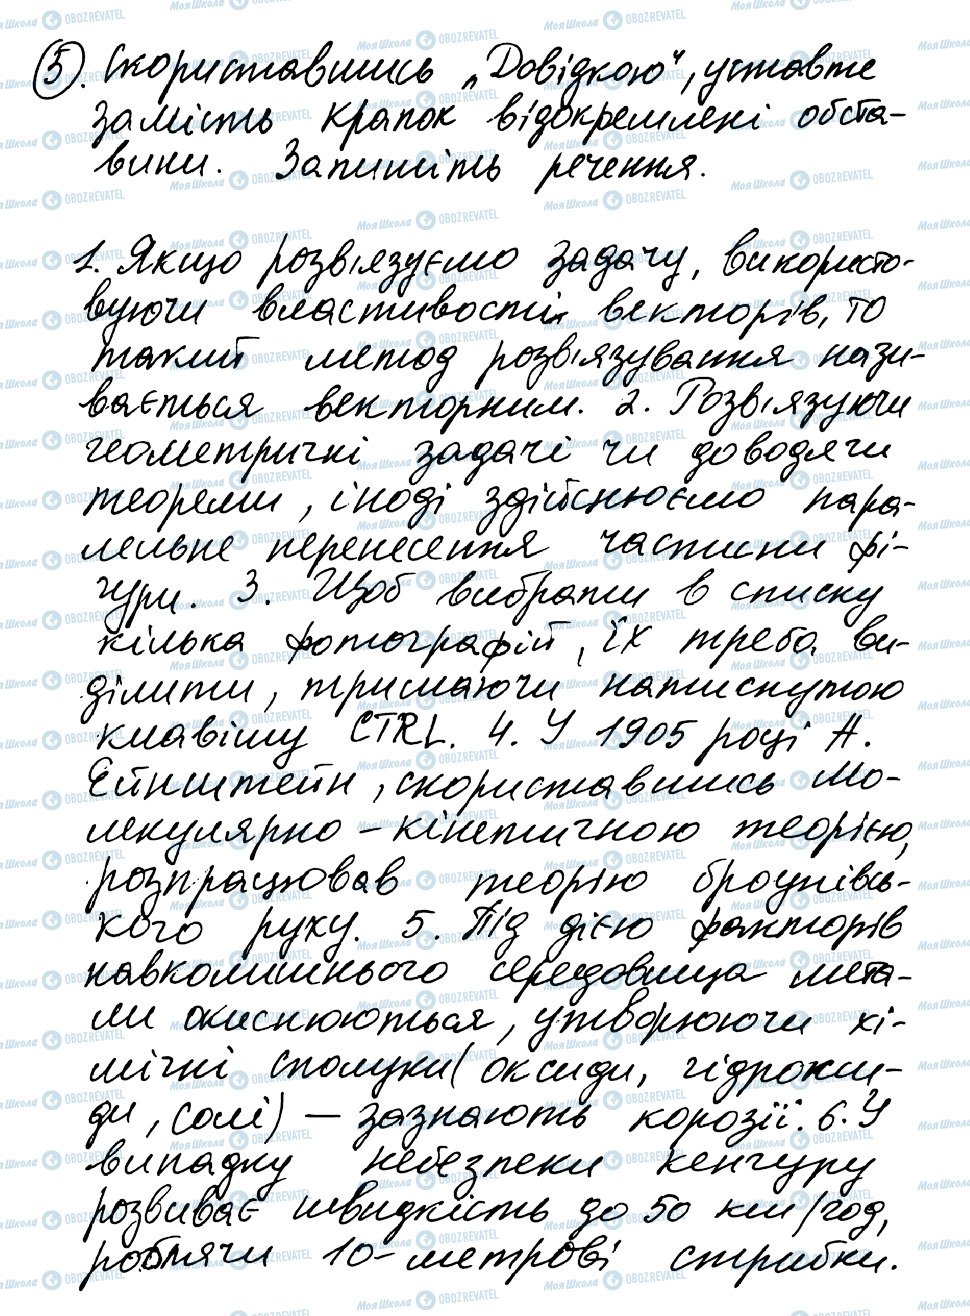 5. Скориставшись „Довідкою", уставте
замість крапок відокремлені обста-
вини. Запишіть речення.
1. Якщо розвіязуємо задачу, використо-
вуючи властивості векторів, то
такий метод розвіязування нази-
вається векторним. 2. Розвіязуючи
геометричні задачі чи доводячи
теореми, іноді здійснюємо пара-
лельне перенесення частини фі-
гури. 3. Щоб вибрати в списку
кілька фотографій, їх треба ви-
ділити, тримаючи натиснутою
клавішу CTRL. 4. У 1905 році А.
Ейнштейн, скориставшись мо-
лекулярно-кінетичною теорією,
розпрацював теорію броунівсь-
кого руху. 5. Під дією факторів
навколишнього середовища мета-
ли окиснюються, утворюючи хі-
мічні сполуки (оксиди, гідрокси-
ди, солі) – зазнають корозії. 6. У
випадку небезпеки кенгуру
розвиває швидкість до 50 км/год,
роблячи 10-метрові стрибки.